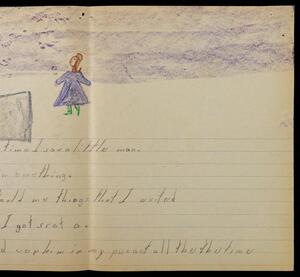 time I saw a little man.
in anything.
told me things that I wated
I got scat a.
him in my pocact all the thetime